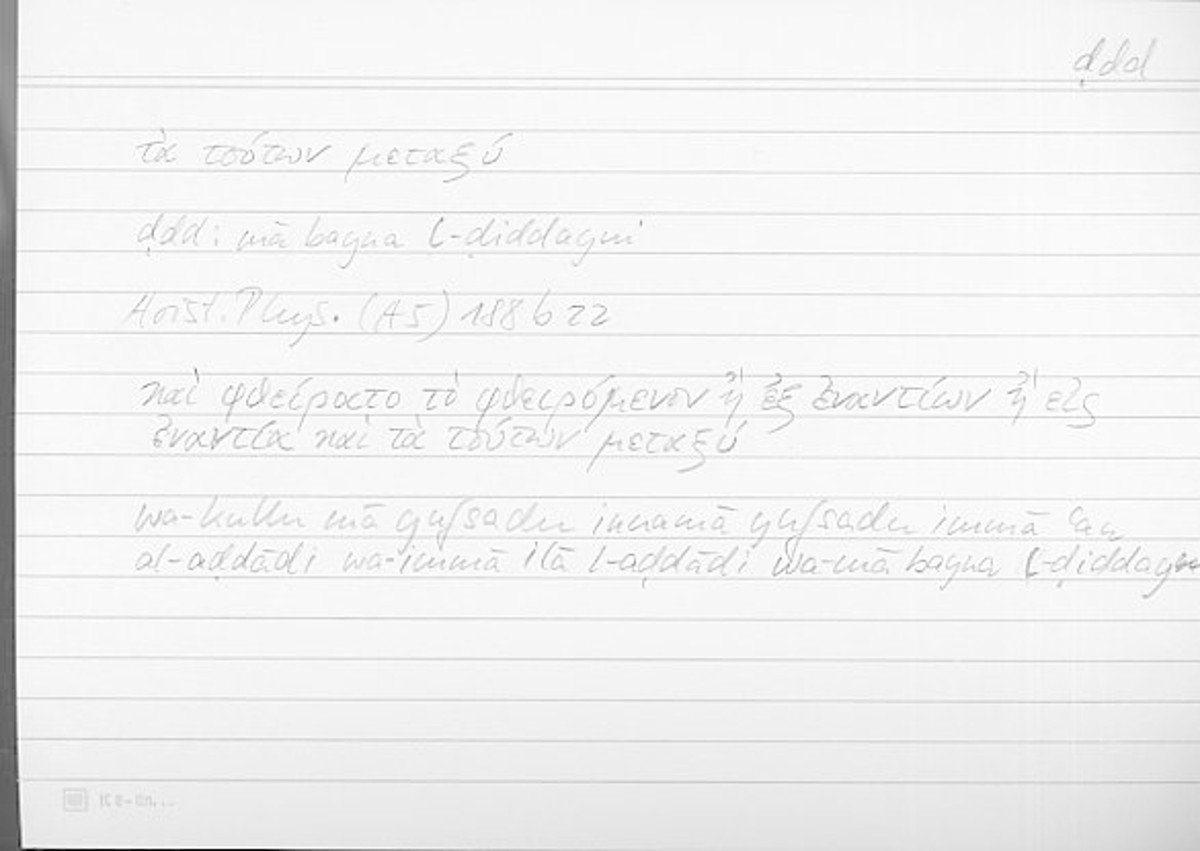 ḍdd
τὰ τούτων μεταξύ
ḍdd: mā bayna l-ḍiddayni
Arist. Phys. (A5) 188 b 22
καὶ φθείροιτο τὸ φθειρόμενον ἢ ἐξ ἐναντίων ἢ εἰς
ἐναντία καὶ τὰ τούτων μεταξύ
wa-kullu mā yufsadu innamā yufsadu immā ʿan
al-aḍdādi wa-immā ilā l-aḍdādi wa-mā bayna l-ḍidday